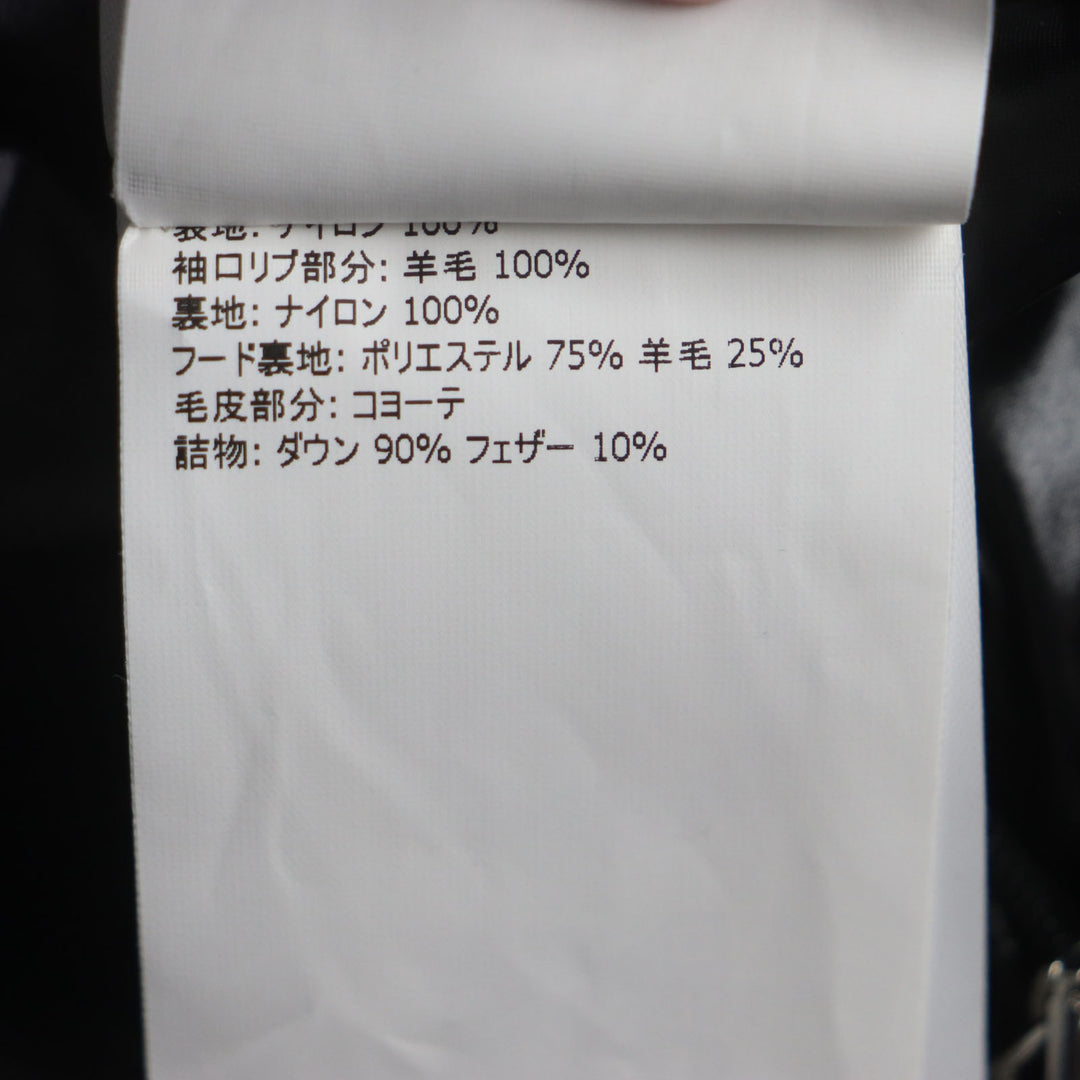 地: ナイロン 100%
袖口リブ部分: 羊毛 100%
裏地: ナイロン 100%
フード裏地: ポリエステル 75% 羊毛 25%
毛皮部分: コヨーテ
詰物: ダウン 90% フェザー 10%